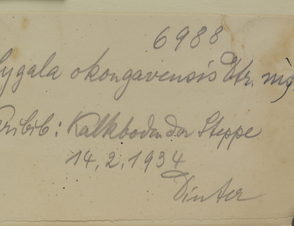 6988
lygala okongavensis Dtr. nig
aribib: Kalkboden der Steppe
14, 2, 1934
Dinter